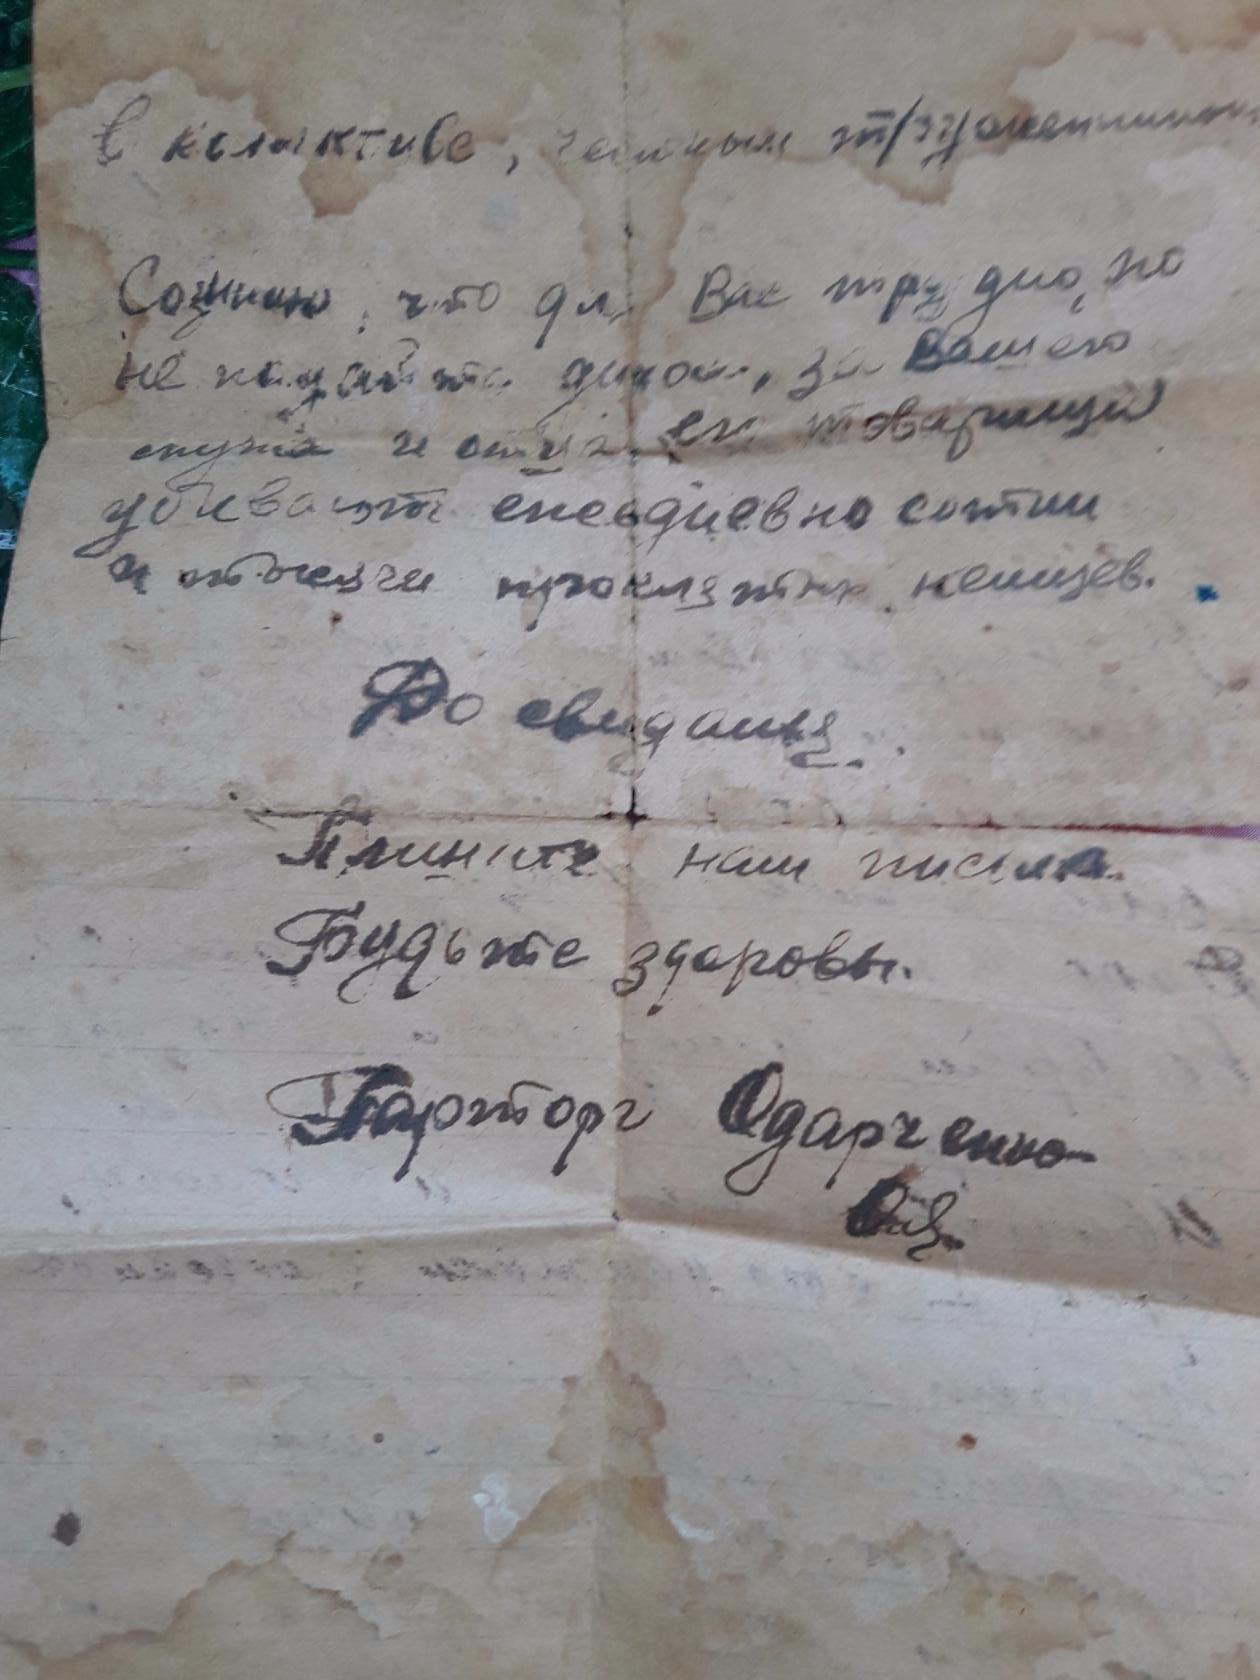 в колективе, честным тружеником
Сознаю, что для Вас трудно, но
не падайте духом, за Вашего
мужа и отца его товарищи
убивают ежедневно сотни
и тысячи проклятых немцев.
До свидания.
Пишите нам письма.
Будьте здоровы.
Парторг Одарченко